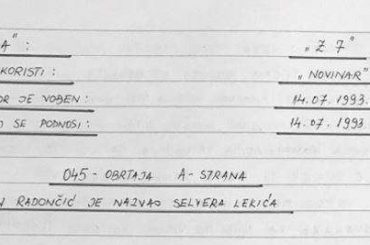 A": „Z 7"
KORISTI: „NOVINAR"
OR JE VOĐEN: 14.07.1993.
O SE PODNOSI: 14.07.1993.
045 - OBRTAJA A-STRANA
RADONČIĆ JE NAZVAO SELVERA LEKIĆA